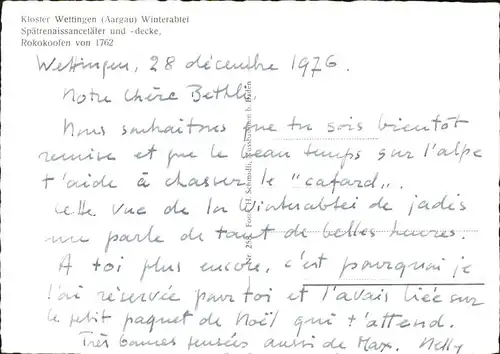 Kloster Wettingen (Aargau) Winterabtei
Spätrenaissancetäfer und -decke,
Rokokoofen von 1762
Wettingen, 28 décembre 1976.
Notre chère Bethli,
Nous souhaitons que tu sois bientôt
remise et que le beau temps sur l'alpe
t'aide à chasser le "cafard".
Cette vue de la Winterabtei de jadis
me parle de tant de belles heures.
A toi plus encore, c'est pourquoi je
l'ai réservée pour toi et l'avais liée sur
le petit paquet de Noël qui t'attend.
Très bonnes pensées aussi de Max. Nelly
Foto H. Schmidli,